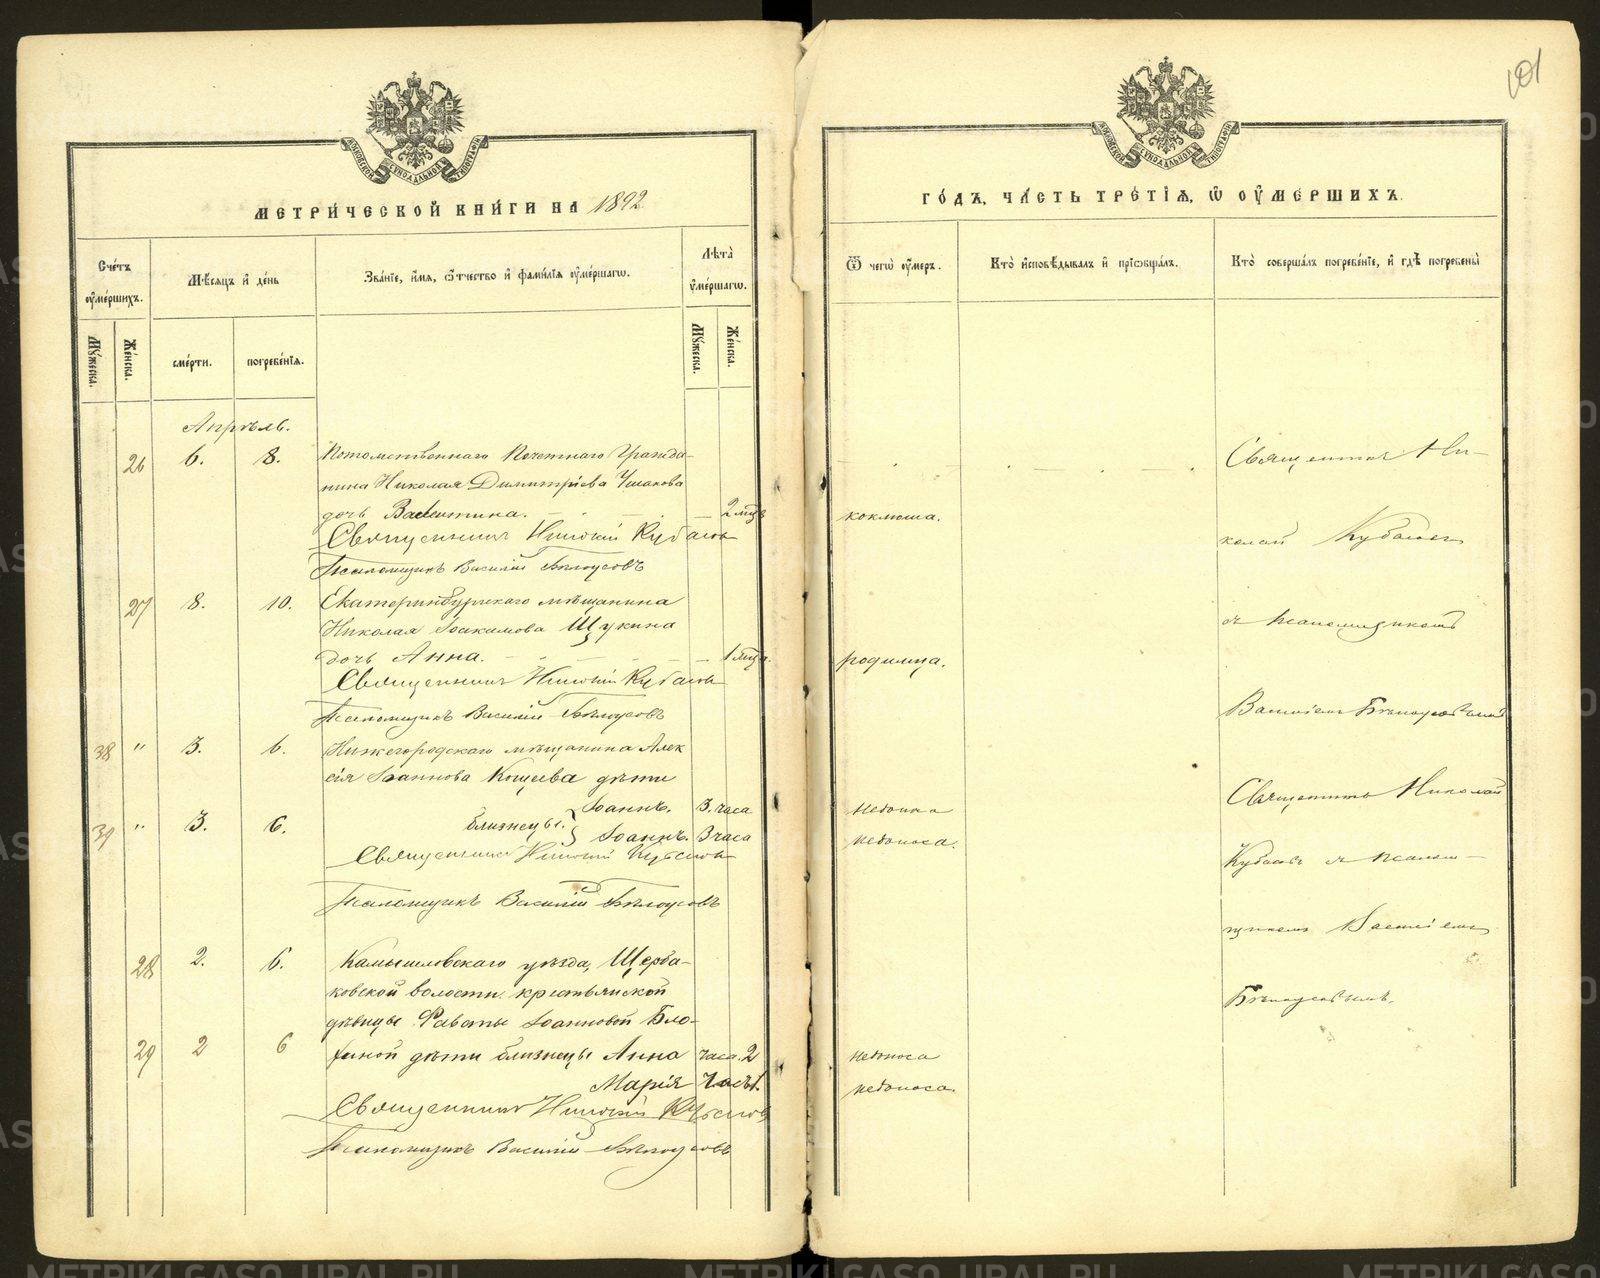 МЕТРИ́ЧЕСКОЙ КНИ́ГИ НА 1892
Сче́тъ ᲂу҆ме́ршихъ.
Мꙋ́жеска.
Же́нска.
Мѣ́сѧцъ и҆ де́нь
сме́рти.
погребе́нїѧ.
Зва́нїе, и҆́мѧ, ѻ҆́тчество и҆ фами́лїѧ ᲂу҆ме́ршагѡ.
Лѣта̀ ᲂу҆ме́ршагѡ.
Мꙋ́жеска.
Же́нска.
Апрѣль.
26 6. 8. Потомственнаго Почетнаго Гражда-
нина Николая Димитріева Ушакова
дочь Валентина. 2 мцъ
Священникъ Николай Кубасовъ
Псаломщикъ Василій Бѣлоусовъ
27 8. 10. Екатеринбургскаго мѣщанина
Николая Іоакимова Щукина
дочь Анна. 1 мца.
Священникъ Николай Кубасовъ
Псаломщикъ Василій Бѣлоусовъ
38 " 3. 6. Нижегородскаго мѣщанина Алек
сія Іоаннова Кощеева дѣти
Іоаннъ. 3. часа
39 " 3. 6. близнецы. Іоаннъ. 3 часа
Священникъ Николай Кубасовъ
Псаломщикъ Василій Бѣлоусовъ
28 2. 6. Камышловскаго уѣзда, Щерба-
ковской волости, крестьянской
дѣвицы Іоанновой Бло-
29 2 6 хиной дѣти близнецы Анна часа. 2
Марія часъ 1.
Священникъ Николай Кубасовъ
Псаломщикъ Василій Бѣлоусовъ
101
ГО́ДЪ, ЧА́СТЬ ТРЕ́ТЇѦ, Ѽ ОУ҆МЕ́РШИХЪ.
Ѿ чегѡ̀ ᲂу҆́меръ.
Кто̀ и҆сповѣ́дывалъ и҆ прїѡбща́лъ.
Кто̀ соверша́лъ погребе́нїе, и҆ гдѣ̀ погребены̀
Священникъ Ни-
коклюша.
колай Кубасовъ
съ псаломщикомъ
родимца.
Василіемъ Бѣлоусовымъ
Священникъ Николай
недоноса
недоноса.
Кубасовъ съ псалом-
щикомъ Василіемъ
Бѣлоусовымъ.
недоноса
недоноса.
METRIKI.GASO-URAL.RU